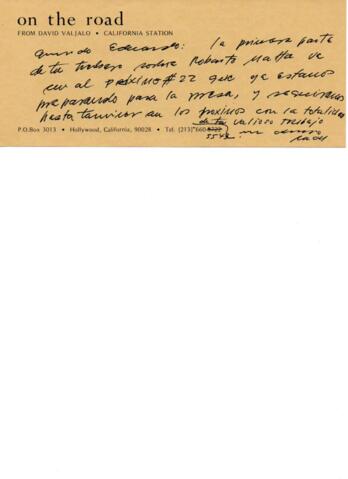 on the road
FROM DAVID VALJALO • CALIFORNIA STATION
Eduardo: la primera parte
de tu trabajo sobre Roberto Matta va
en el PRÓXIMO #22 que ya estamos
preparando para la prensa, y seguiremos
hasta terminar en los próximos con la totalidad
de tu valioso trabajo
P.O.Box 3013 • Hollywood, California, 90028 • Tel. (213) 660-8722
5548.
un abrazo